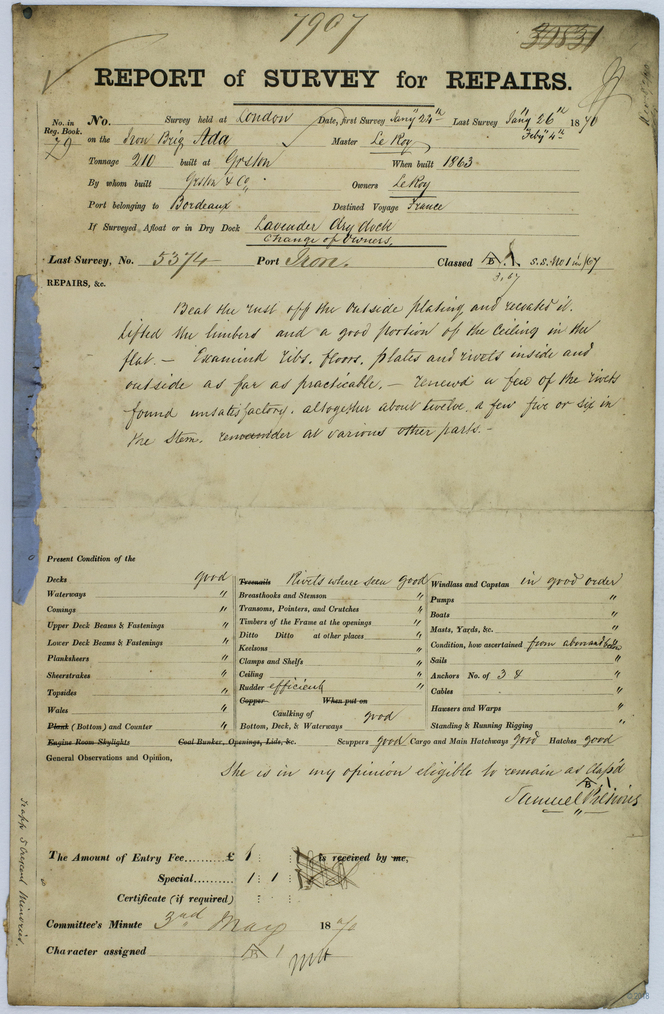 7907
REPORT of SURVEY for REPAIRS.
No. in Reg. Book. No. Survey held at London Date, first Survey Jany 24th Last Survey Jany 26th 1870
Feby 4th
79 on the Iron Brig Ada Master Le Roy
Tonnage 210 built at Grston When built 1863
By whom built Grston & Co, Owners LeRoy
Port belonging to Bordeaux Destined Voyage France
If Surveyed Afloat or in Dry Dock Lavender dry dock
Change of Owners.
Last Survey, No. 5374 Port Iron. Classed B 1 S.S. No 1 in /67
3,67
REPAIRS, &c.
Beat the rust off the outside plating and recoated it.
lifted the limbers and a good portion of the ceiling in the
flat. — Examined ribs, floors, plates and rivets inside and
outside as far as practicable. — renewd a few of the rivets
found unsatisfactory. altogether about twelve. a few five or six in
the Stem. remainder at various other parts. —
Present Condition of the
Decks good
Waterways "
Comings "
Upper Deck Beams & Fastenings "
Lower Deck Beams & Fastenings "
Planksheers "
Sheerstrakes "
Topsides "
Wales "
Plank (Bottom) and Counter "
Engine Room Skylights Coal Bunker, Openings, Lids, &c.
Treenails Rivets where seen good
Breasthooks and Stemson "
Transoms, Pointers, and Crutches "
Timbers of the Frame at the openings "
Ditto Ditto at other places "
Keelsons "
Clamps and Shelfs "
Ceiling "
Rudder efficient
Copper When put on
Caulking of Bottom, Deck, & Waterways good
Windlass and Capstan in good order
Pumps "
Boats "
Masts, Yards, &c. "
Condition, how ascertained from above and below
Sails "
Anchors No. of 3 & "
Cables "
Hawsers and Warps "
Standing & Running Rigging "
Scuppers good Cargo and Main Hatchways good Hatches good
General Observations and Opinion,
She is in my opinion eligible to remain as Clap'd
B 1
Samuel
The Amount of Entry Fee......... £ 1 : : is received by me,
Special......... 1 : 1 :
Certificate (if required) : :
Committee's Minute 3rd May 1870
Character assigned B 1
5 Crescent Minories.